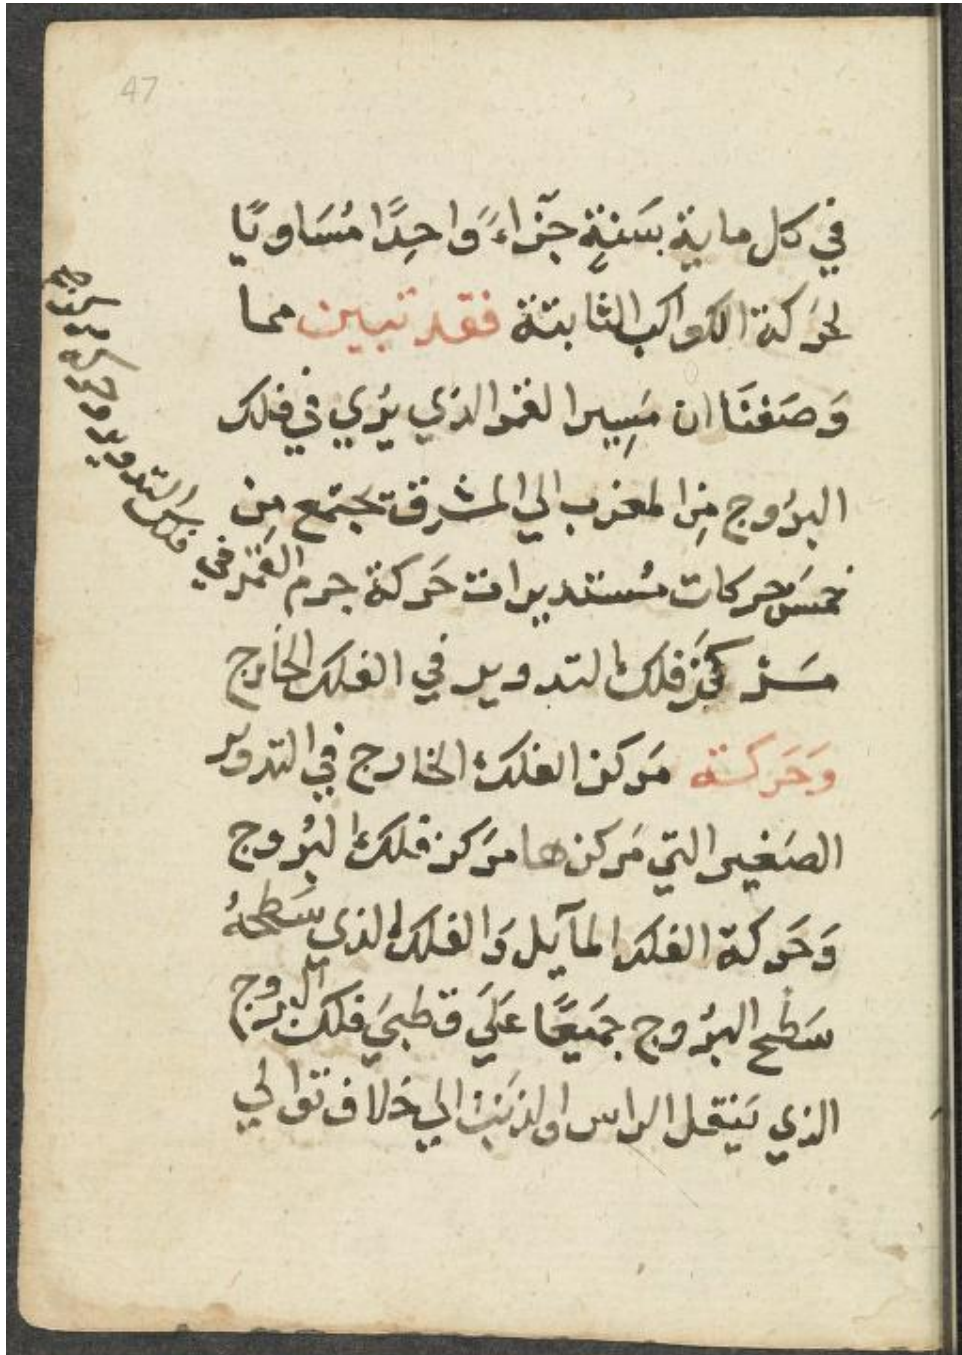 47
في كل ماية سَنةٍ جزاءً وَاحِدًا مُسَاويًا
لحَركة الكواكب الثابتة فقد تبين مما
وَصَفنَا ان مَسِير القمر الذي يُري في فلك
البرُوج مِن المغرب الي المشرق تجتمع مِن
خمسَ حركات مُستديرات حَركة جرم القَمر في
فلك التدوير وحركة
مَركز فلك التدوير في الفلك الخارج
وَحَركة مَركز الفلك الخارج في التدوير
الصَغير التي مَركزها مَركز فلك البُروج
وَحَركة الفلك المآيل وَالفلك الذي سَطحهُ
سَطح البرُوج جمَيعًا عَلَي قطبيَ فلك البروج
الذي يَنقل الراس اوالذنَب الي خلاف توالي